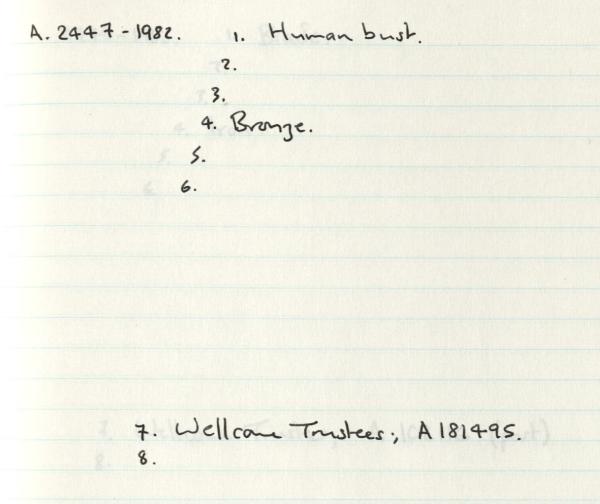 A. 2447-1982. 1. Human bust.
2.
3.
4. Bronze.
5.
6.
7. Wellcome Trustees; A181495.
8.